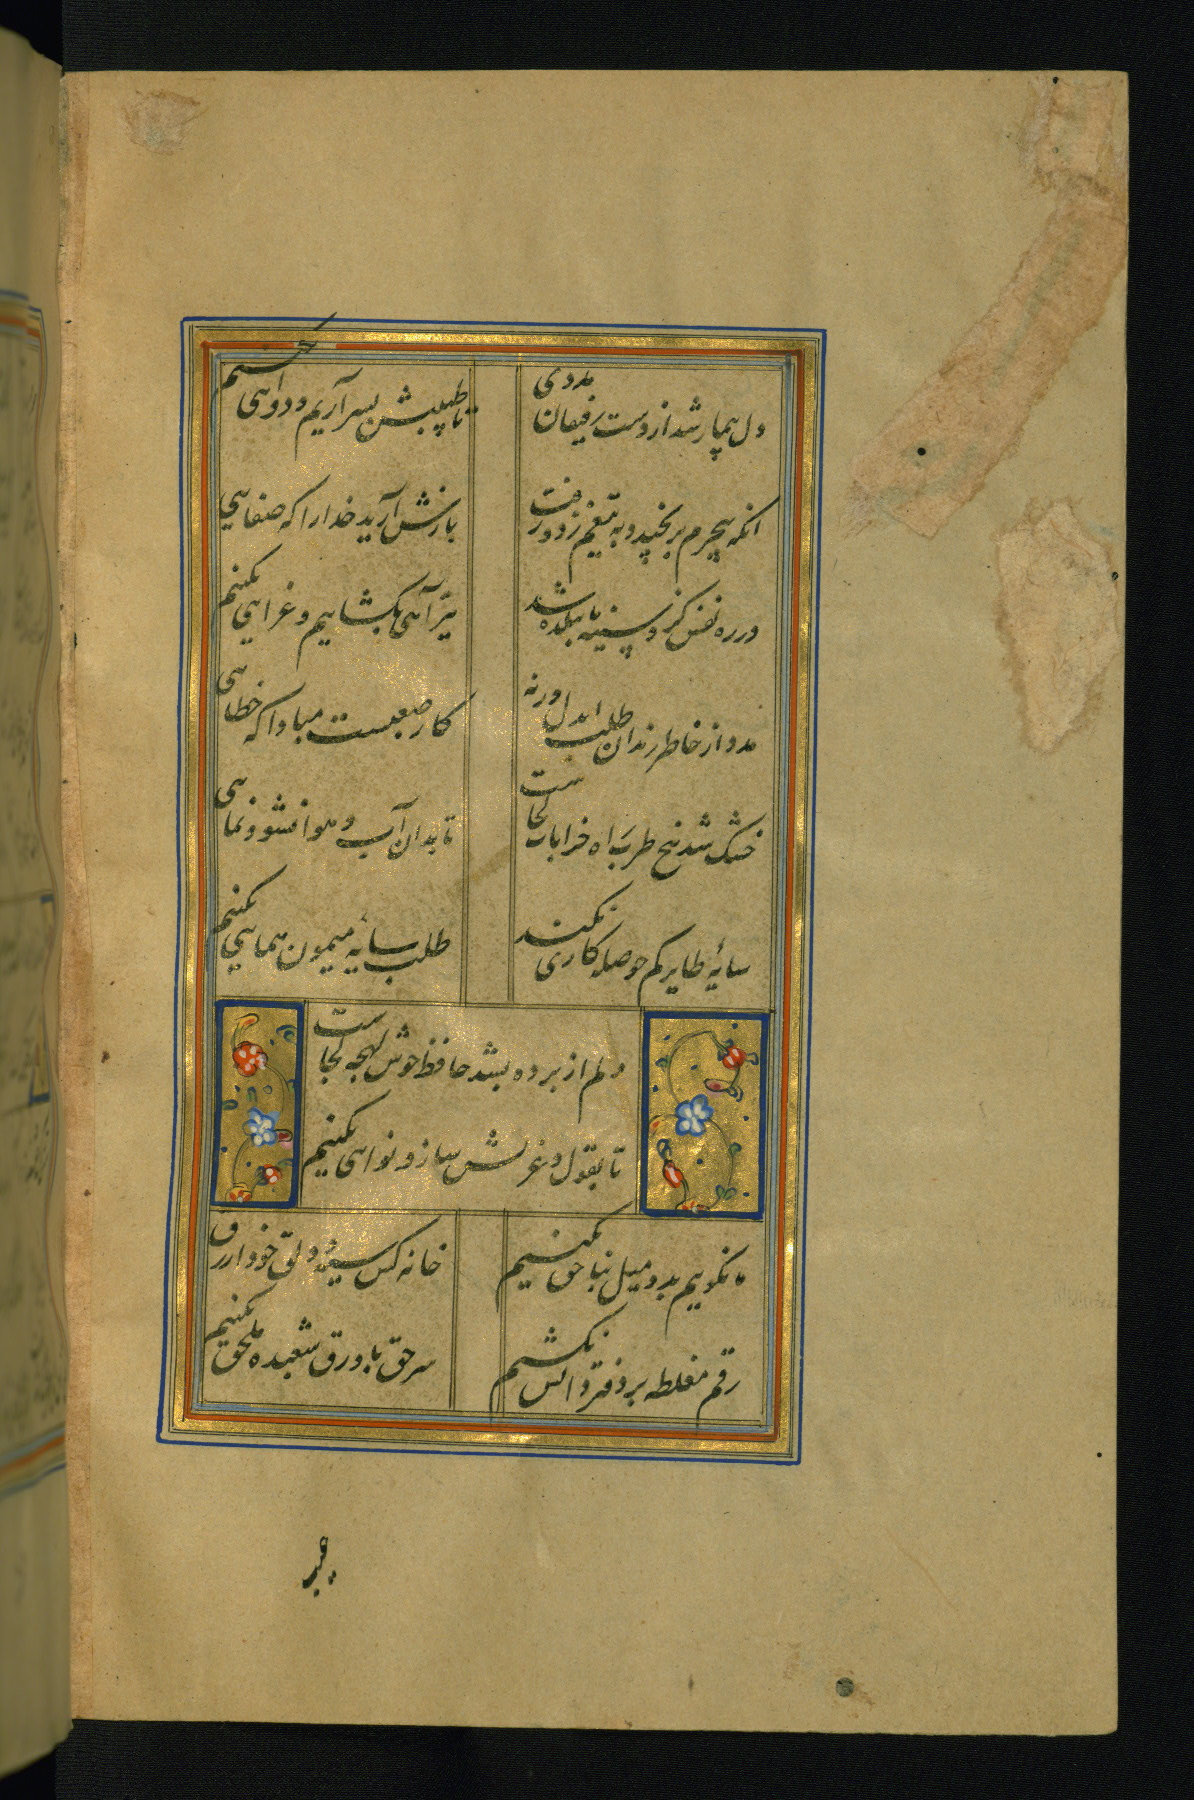 دل بیمار شد از دست رفیقان مددی
تا طبیبش بسر آریم و دوایی بکنیم
انکه بیجرم برنجید و به تیغم زد و رفت
بازش آرید خدارا که صفایی
در ره نفس کزو سینه ما بتکده شد
تیر آهی بکشاییم و غزایی بکنیم
مدد از خاطر رندان طلب ایدل ورنه
کار صعبست مبادا که خطایی
خشک شد بیخ طرب راه خرابات کجاست
تا بدان آب و هوا نشو و نمایی
سایهٔ طایر کم حوصله کاری نکند
طلب سایه میمون همایی بکنیم
دلم از پرده بشد حافظ خوش لهجه کجاست
تا بقول و غزلش ساز و نوایی بکنیم
ما نگوییم بد و میل بناحق نکنیم
خانه کس سیه و دلق خود ازرق نکنیم
رقم مغلطه بر دفتر دانش نکشیم
سر حق با ورق شعبده ملحق نکنیم
عیب